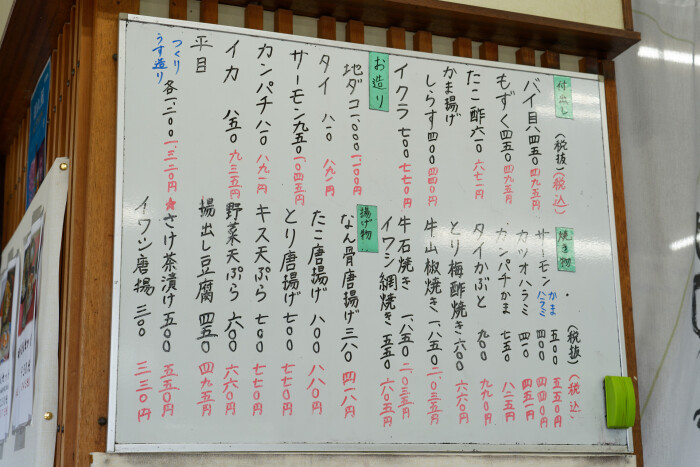 付出し
(税抜)(税込)
バイ貝 八四五〇 四九五円
もずく 四五〇 四九五円
たこ酢 六一〇 六七一円
かま揚げ
しらす 四〇〇 四四〇円
お造り
イクラ 七〇〇 七七〇円
地ダコ 一、〇〇〇 一、一〇〇円
タイ 八一〇 八九一円
サーモン 九五〇 一、〇四五円
カンパチ 八一〇 八九一円
イカ 八五〇 九三五円
平目
つくり
うす造り
各一、二〇〇 一、三二〇円
焼き物
(税抜)(税込)
サーモン かま ハラミ 五〇〇 五五〇円
四〇〇 四四〇円
カツオハラミ 四一〇 四五一円
カンパチかま 七五〇 八二五円
タイかぶと 九〇〇 九九〇円
とり梅酢焼き 六〇〇 六六〇円
牛山椒焼き 一、八五〇 二、〇三五円
牛石焼き 一、八五〇 二、〇三五円
イワシ網焼き 五五〇 六〇五円
揚げ物
なん骨唐揚げ 三八〇 四一八円
たこ唐揚げ 八〇〇 八八〇円
とり唐揚げ 七〇〇 七七〇円
キス天ぷら 七〇〇 七七〇円
野菜天ぷら 六〇〇 六六〇円
揚出し豆腐 四五〇 四九五円
★さけ茶漬け 五〇〇 五五〇円
イワシ唐揚 三〇〇 三三〇円